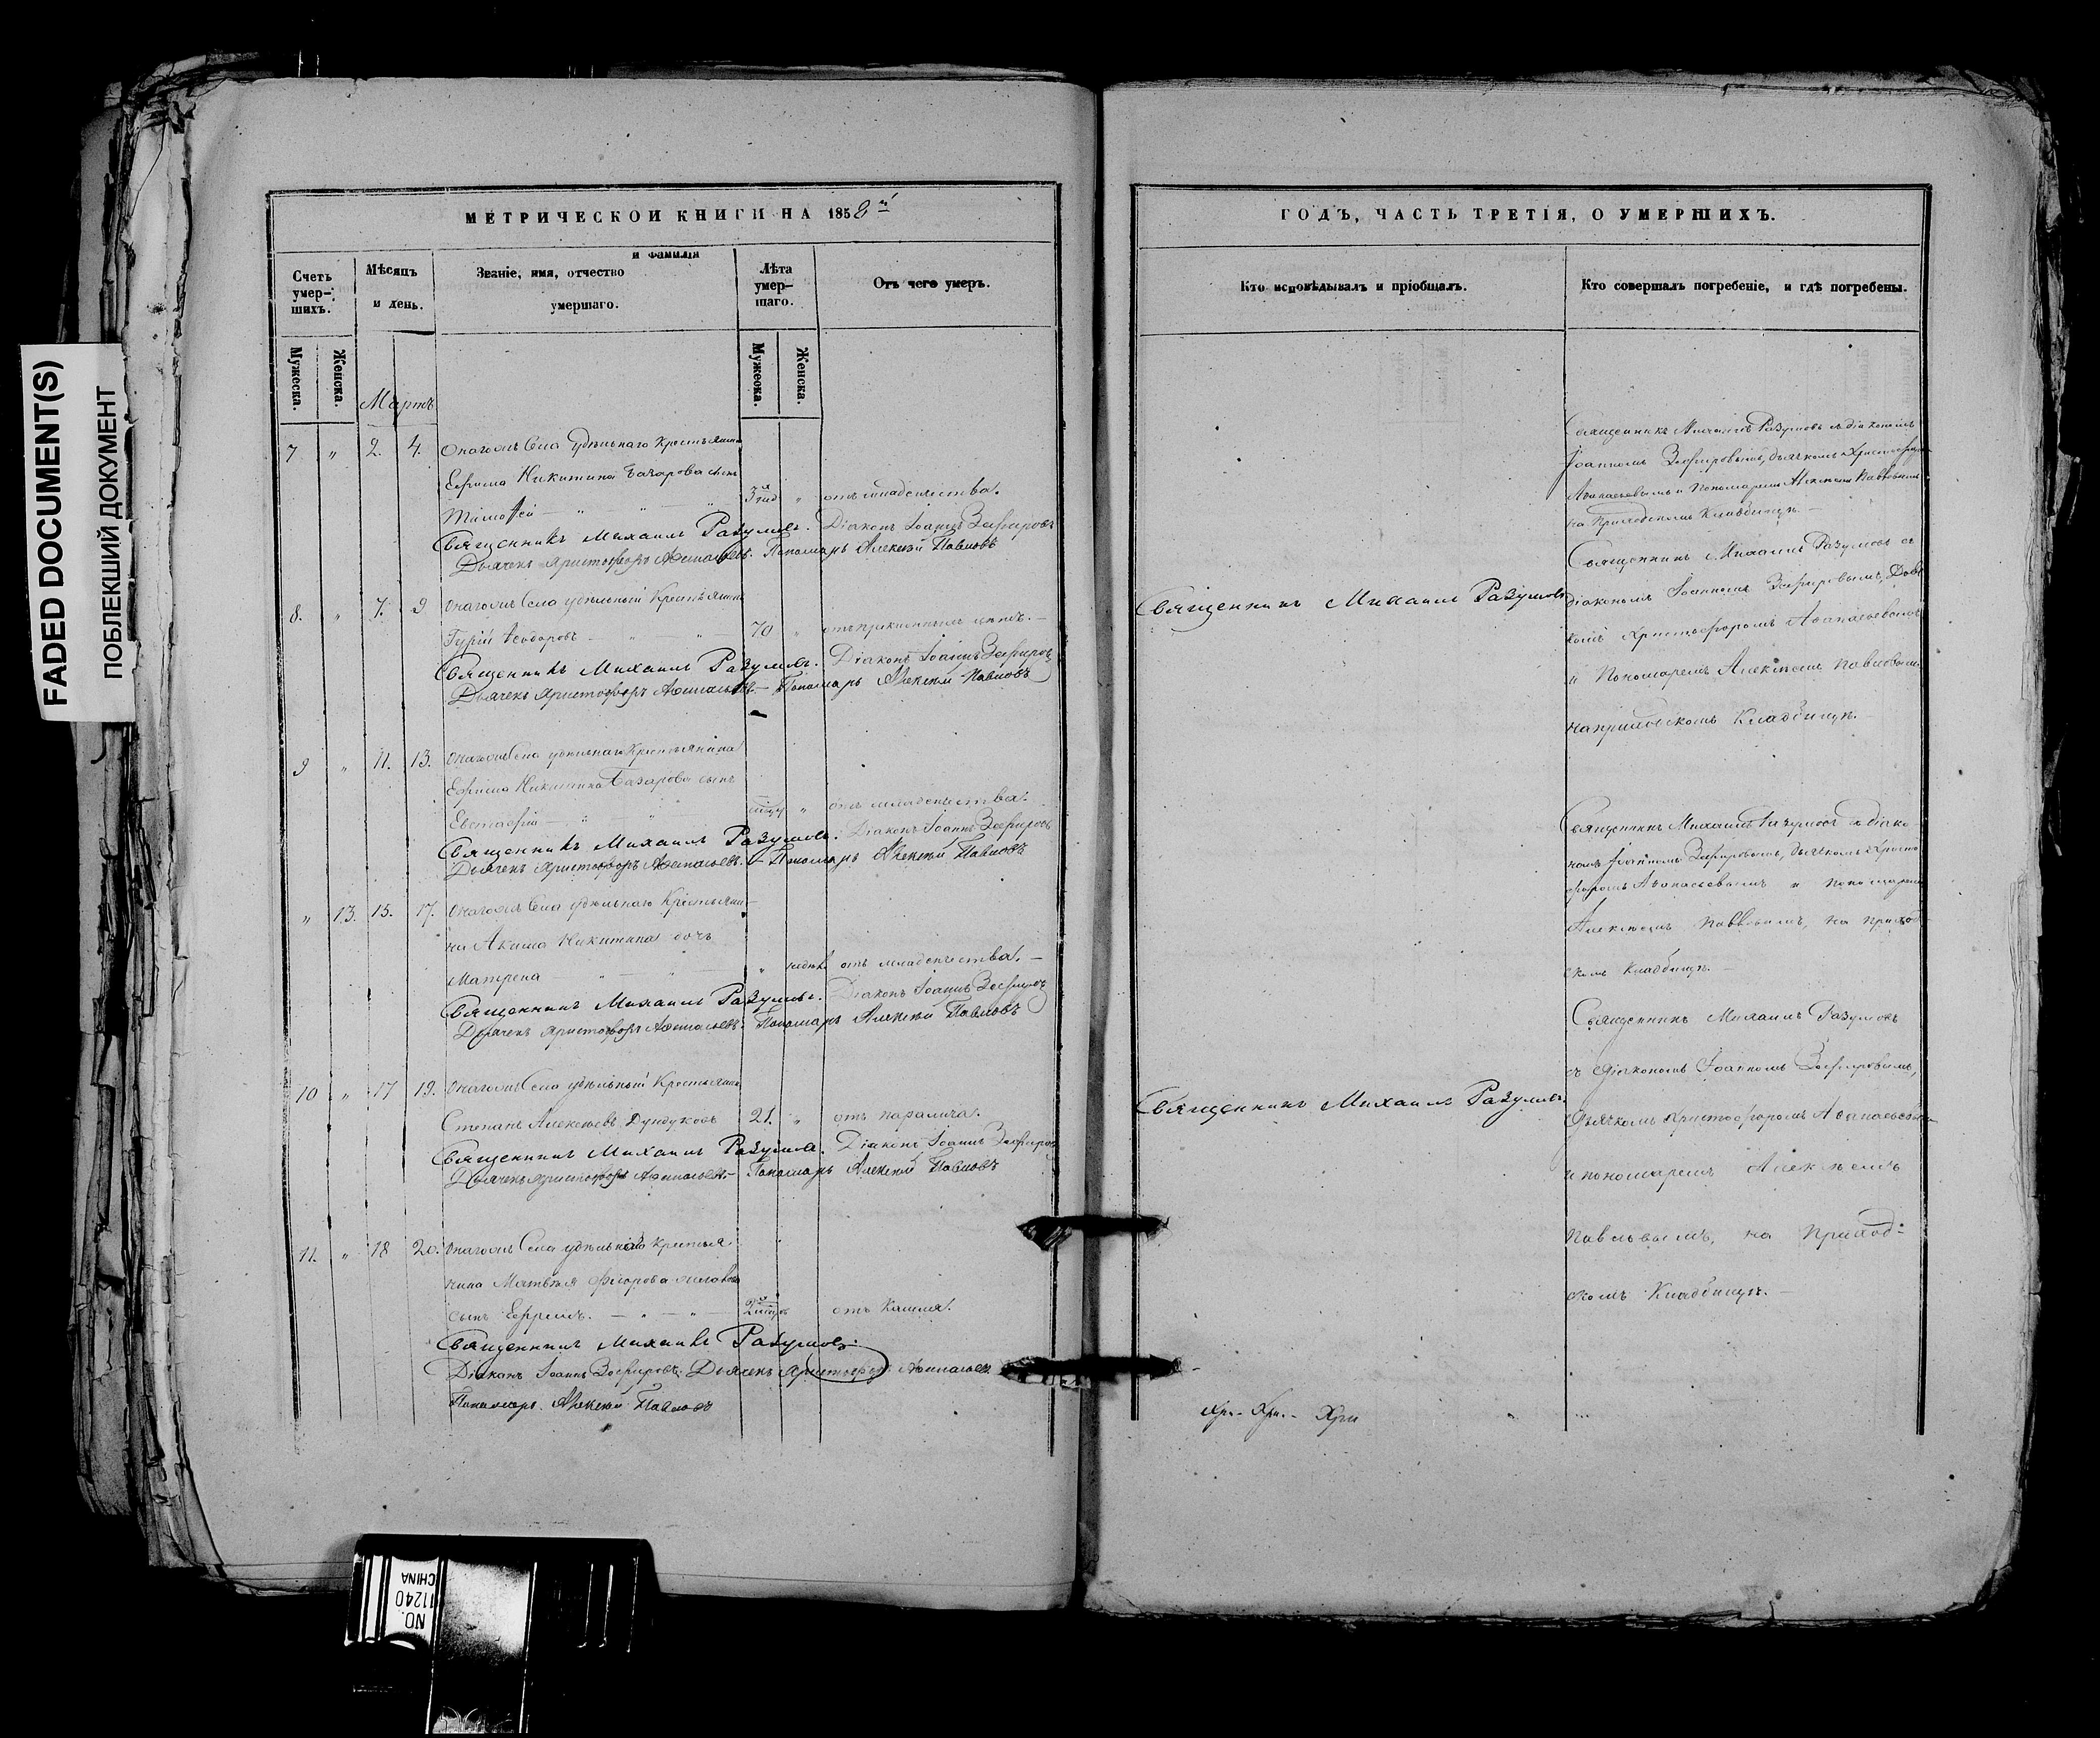 FADED DOCUMENT(S)
ПОБЛЕКШИЙ ДОКУМЕНТ
МЕТРИЧЕСКОЙ КНИГИ НА 1858й
Счетъ умер-шихъ.
Мужеска.
Женска.
Мѣсяцъ и день.
Званіе, имя, отчество и фамилія умершаго.
Лѣта умер-шаго.
Мужеска.
Женска.
Отъ чего умеръ.
Мартъ
7 " 2. 4. Онагожъ Села удѣльнаго Крестьянина
Ефрима Никитина сынъ
Тимоѳей — " — " 3 " отъ младенчества.
Священникъ Михаилъ Разумовъ. Діаконъ Іоаннъ Зефировъ
Дьячекъ Христофоръ Афанасьевъ. Пономарь Алексѣй Павловъ
8. " 7. 9 Онагожъ Села удѣльный Крестьянинъ
Гурій Ѳеодоровъ — " " 70 "
Священникъ Михаилъ Разумовъ. Діаконъ Іоаннъ Зефировъ
Дьячекъ Христофоръ Афанасьевъ. — Пономарь Алексѣй Павловъ
9 " 11. 13. Онагожъ Села удѣльнаго Крестьянина
Ефрима Никитина Базарова сынъ
Евстафій — " " отъ младенчества.
Священникъ Михаилъ Разумовъ. Діаконъ Іоаннъ Зефировъ
Дьячекъ Христофоръ Афанасьевъ. — Пономарь Алексѣй Павловъ
" 13. 15. 17. Онагожъ Села удѣльнаго Крестьяни-
на Акима Никитина дочь
Матрена " — " — " отъ младенчества. —
Священникъ Михаилъ Разумовъ. Діаконъ Іоаннъ Зефировъ
Дьячекъ Христофоръ Афанасьевъ. Пономарь Алексѣй Павловъ
10 " 17 19. Онагожъ Села удѣльный Крестьянинъ
Степанъ Алексѣевъ Дундуковъ 21. " отъ паралича.
Священникъ Михаилъ Разумовъ. Діаконъ Іоаннъ Зефировъ
Дьячекъ Христофоръ Афанасьевъ. — Пономарь Алексѣй Павловъ
11. " 18 20. Онагожъ Села удѣльнаго Крестья
нина Матвѣя
сынъ Ефремъ. — " — " — отъ Кашля.
Священникъ Михаилъ Разумовъ.
Діаконъ Іоаннъ Зефировъ. Дьячекъ Христофоръ Афанасьевъ
Пономарь Алексѣй Павловъ
ГОДЪ, ЧАСТЬ ТРЕТІЯ, О УМЕРШИХЪ.
Кто исповѣдывалъ и пріобщалъ.
Кто совершалъ погребеніе, и гдѣ погребены.
Священникъ Михаилъ Разумовъ съ діакономъ
Іоанномъ Зефировымъ, дьячкомъ Христофоромъ
Аѳанасьевымъ и Пономаремъ Алексѣемъ Павловымъ
на Приходскомъ Кладбищѣ. —
Священникъ Михаилъ Разумовъ
Священникъ Михаилъ Разумовъ съ
діакономъ Іоанномъ Зефировымъ, Дьяч
комъ Христофоромъ Аѳанасьевымъ
и Пономаремъ Алексѣемъ Павловымъ
на приходскомъ Кладбищѣ. —
Священникъ Михаилъ Разумовъ съ діако
номъ Іоанномъ Зефировымъ, дьячкомъ Христо
форомъ Аѳанасьевымъ и Пономаремъ
Алексѣемъ Павловымъ, на приход
скомъ Кладбищѣ. —
Священникъ Михаилъ Разумовъ.
Священникъ Михаилъ Разумовъ
съ Діакономъ Іоанномъ Зефировымъ,
Дьячкомъ Христофоромъ Аѳанасьевымъ
и пономаремъ Алексѣемъ
Павловымъ, на Приход-
скомъ Кладбищѣ. —
Хри- Хри.- Хри
NO. 11240
CHINA